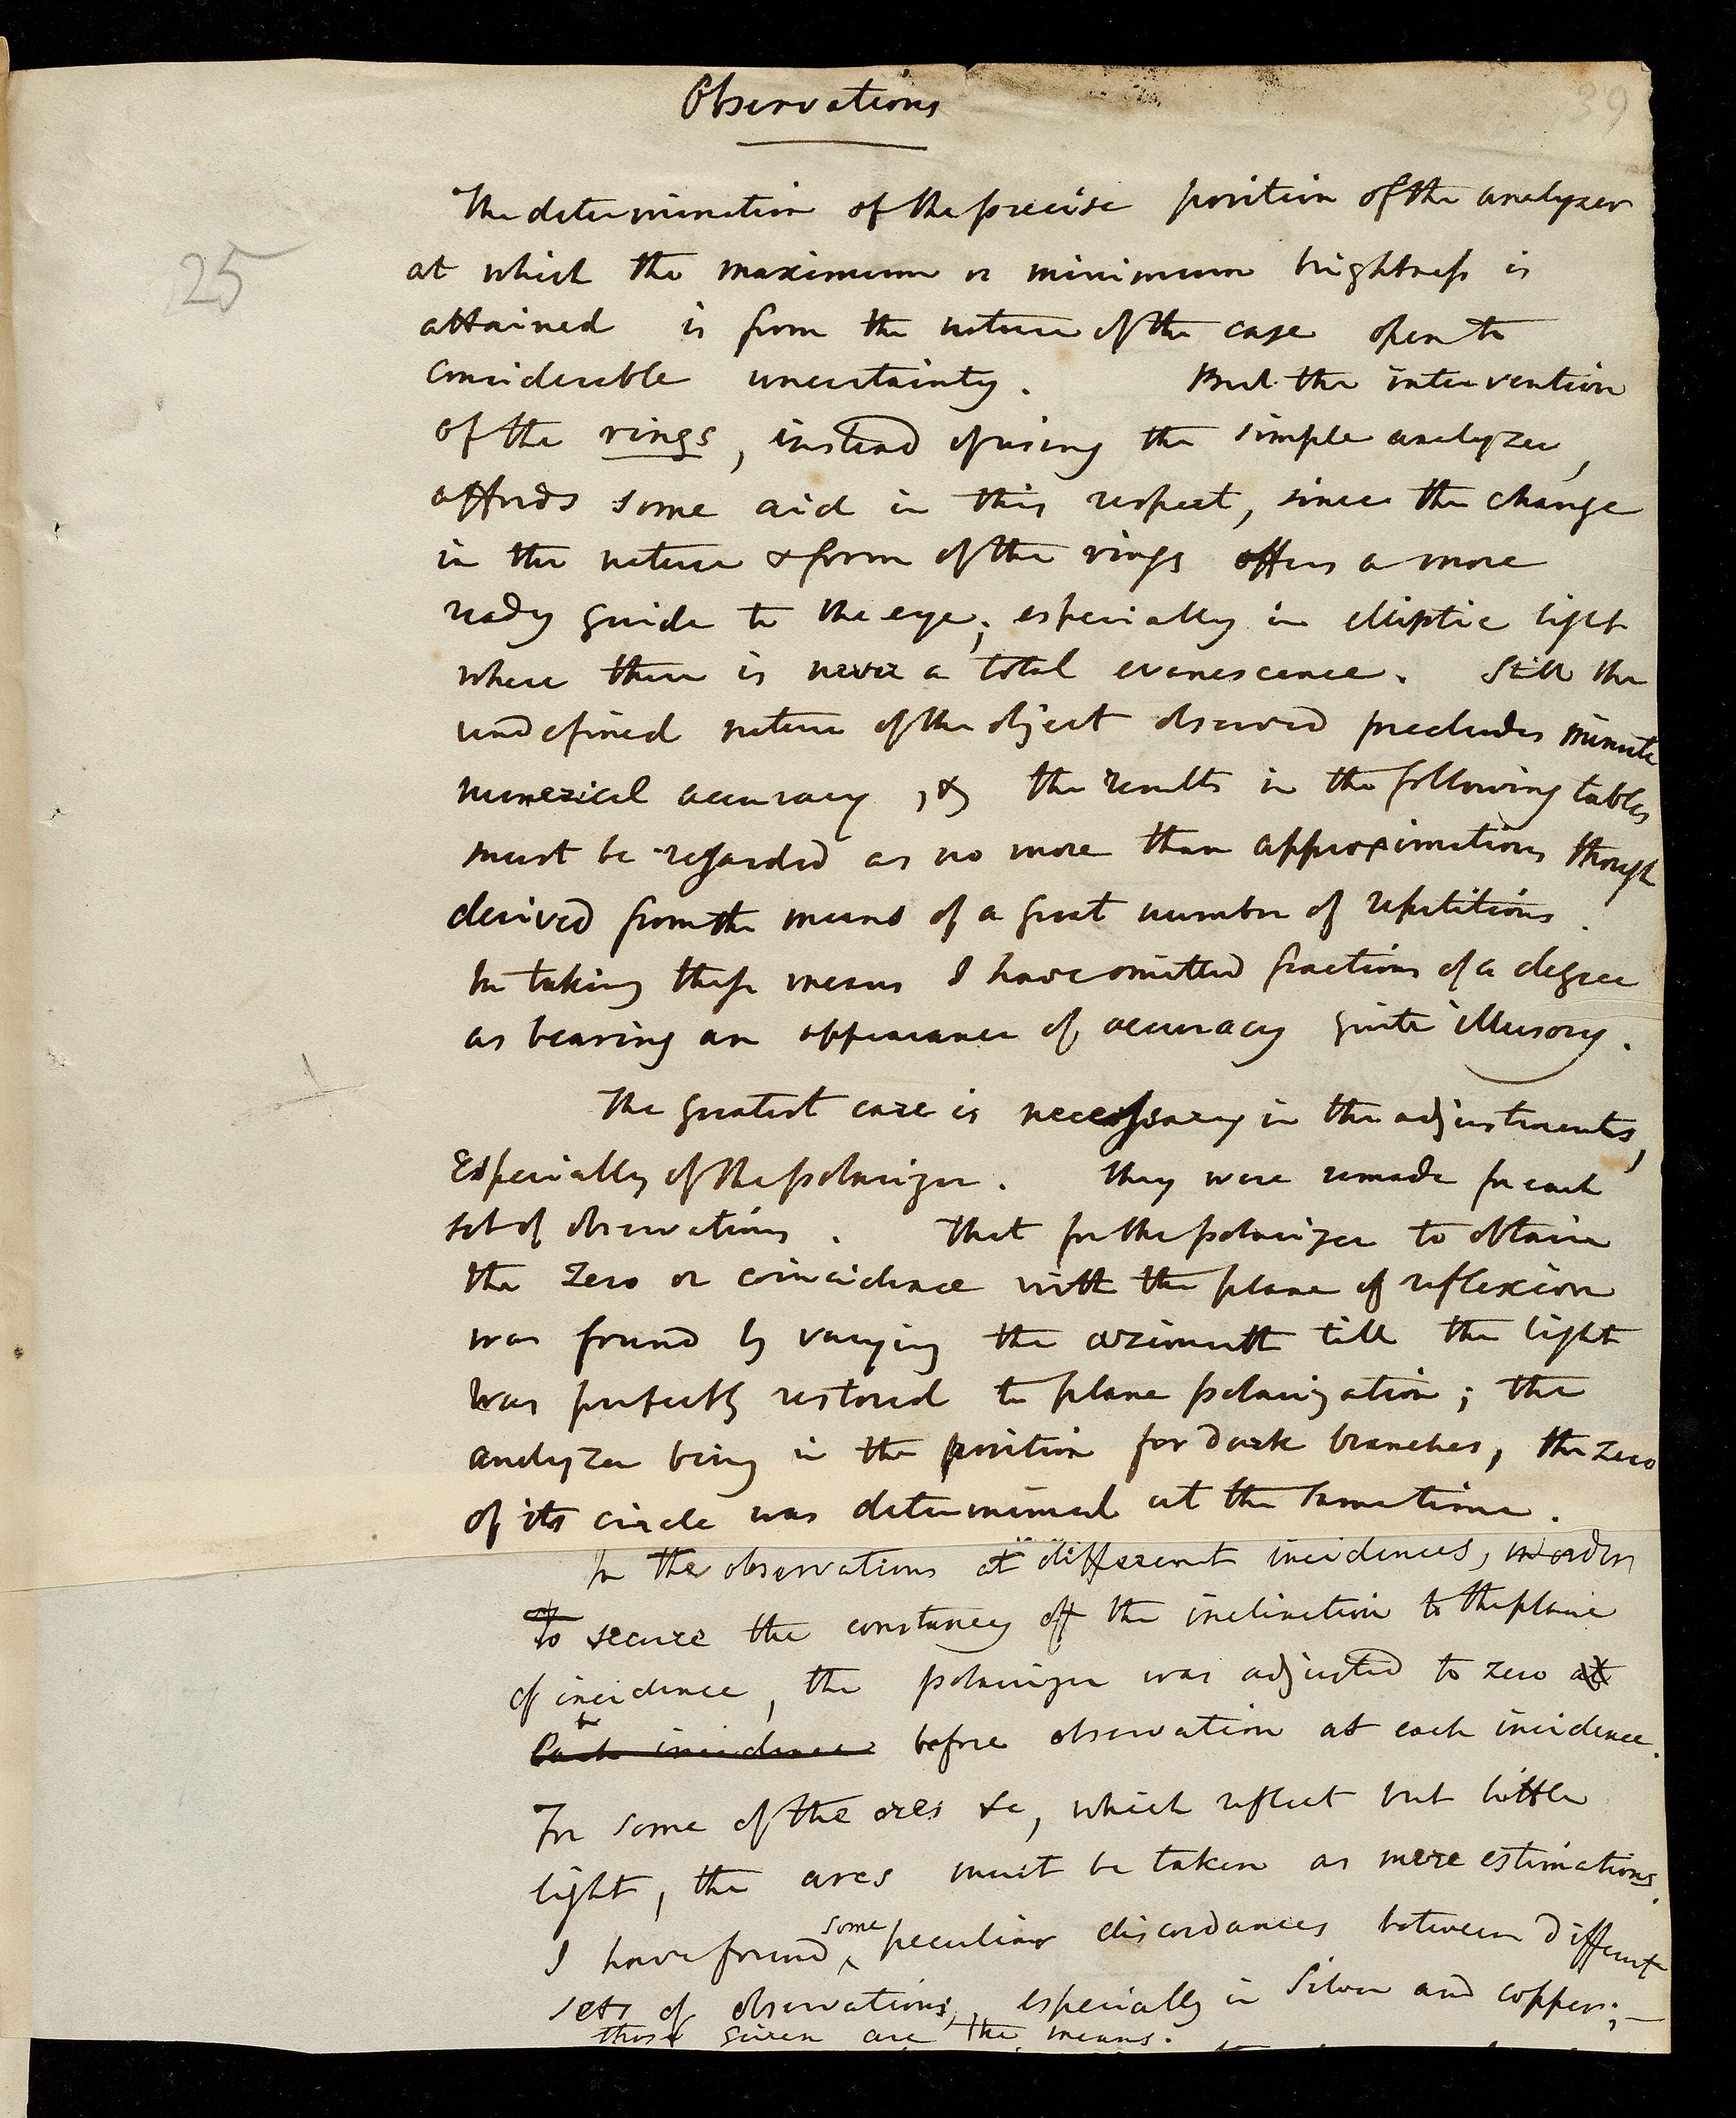 Observations
39
The determination of the precise position of the analyzer
25
at which the maximum or minimum brightness is
attained is from the nature of the case open to
considerable uncertainty. But the intervention
of the rings, instead of using the simple analyzer,
affords some aid in this respect, since the change
in the nature & form of the rings offers a more
ready guide to the eye; especially in elliptic light
where there is never a total evanescence. Still the
undefined nature of the object observed precludes minute
numerical accuracy, & the results in the following tables
must be regarded as no more than approximations though
derived from the means of a great number of repetitions.
In taking these means I have omitted fractions of a degree
as bearing an appearance of accuracy quite illusory.
The greatest care is necessary in the adjustments,
Especially of the polarizer. They were remade for each
set of observations. That for the polarizer to obtain
the zero or coincidence with the plane of reflexion
was found by varying the azimuth till the light
was perfectly restored to plane polarization; the
analyzer being in the position for dark branches, the zero
of its circle was determined at the same time.
In the observations at different incidences, in order
To secure the constancy of the inclination to the plane
of incidence, the polarizer was adjusted to zero at
Each incidence before observation at each incidence.
For some of the ores &c, which reflect but little
light, the arcs must be taken as mere estimations.
I have found some peculiar discordances between different
sets of observations, especially in Silver and copper; –
those given are the means.